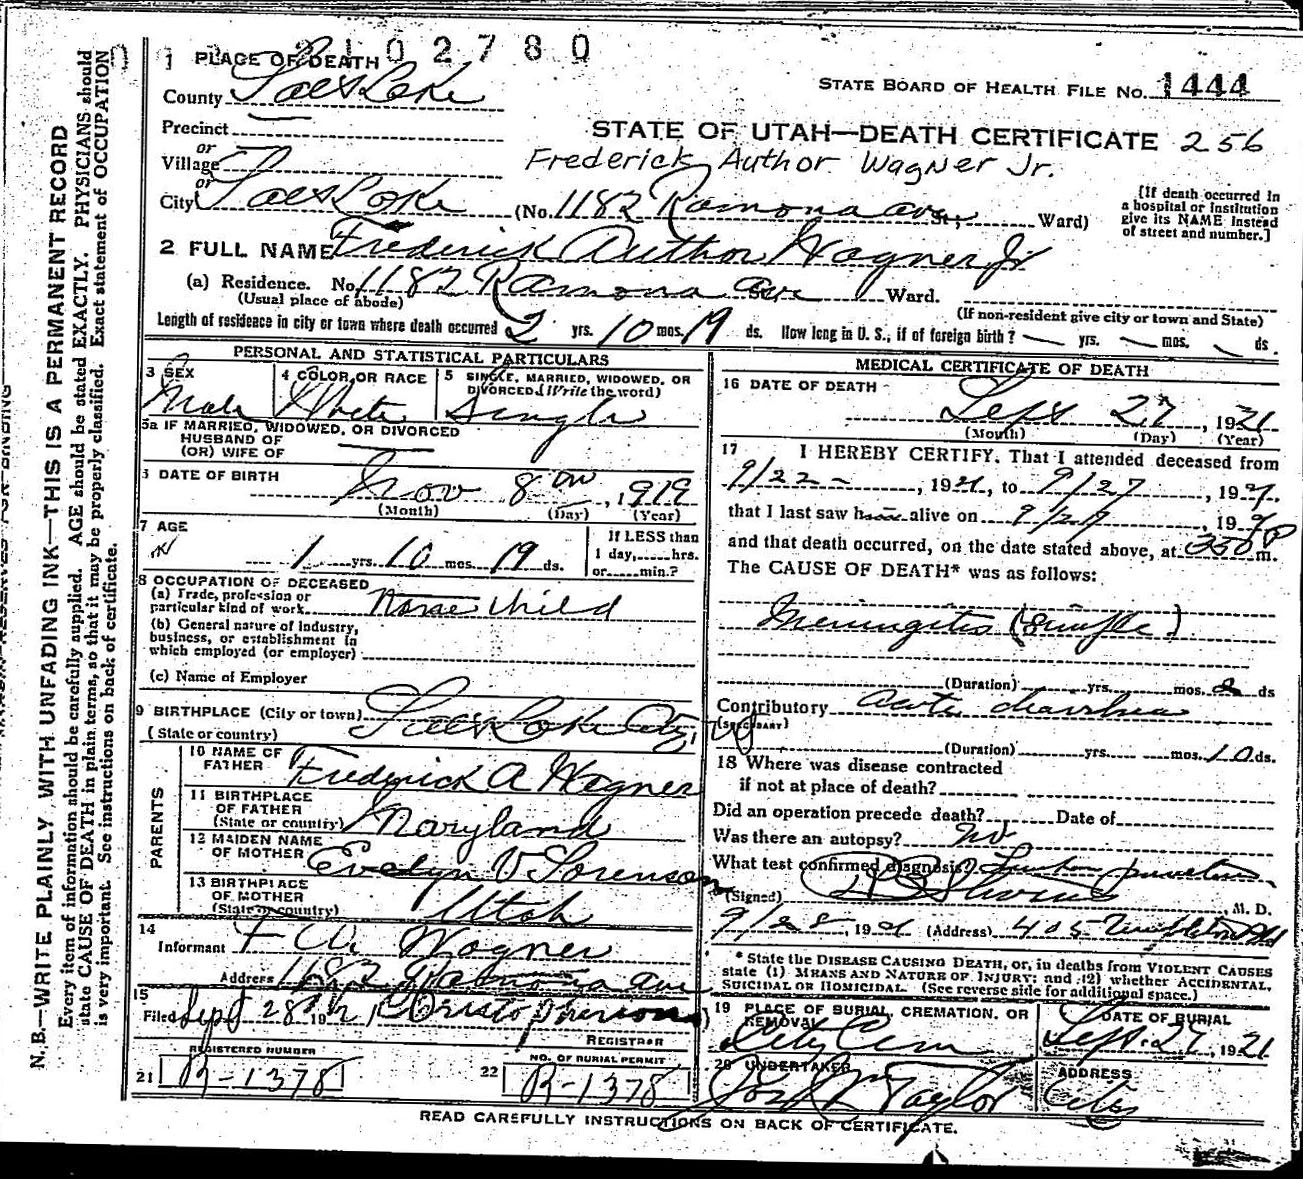 2102780
1 PLACE OF DEATH
STATE BOARD OF HEALTH FILE NO. 1444
County Salt Lake
Precinct
STATE OF UTAH—DEATH CERTIFICATE 256
or
Village
Frederick Author Wagner Jr.
or
City Salt Lake (No. 1182 Ramona Ave St.; Ward)
[If death occurred in
a hospital or institution
give its NAME instead
of street and number.]
2 FULL NAME Frederick Author Wagner Jr
(a) Residence. No. 1182 Ramona Ave Ward.
(Usual place of abode)
(If non-resident give city or town and State)
Length of residence in city or town where death occurred 2 yrs. 10 mos. 19 ds. How long in U. S., if of foreign birth? — yrs. — mos. — ds.
PERSONAL AND STATISTICAL PARTICULARS
3 SEX
Male
4 COLOR OR RACE
White
5 SINGLE, MARRIED, WIDOWED, OR
DIVORCED (Write the word)
Single
5a IF MARRIED, WIDOWED, OR DIVORCED
HUSBAND OF
(OR) WIFE OF
6 DATE OF BIRTH Nov 8 , 1919
(Month) (Day) (Year)
7 AGE
1 yrs. 10 mos. 19 ds.
If LESS than
1 day,......hrs.
or......min.?
8 OCCUPATION OF DECEASED
(a) Trade, profession or
particular kind of work child
(b) General nature of industry,
business, or establishment in
which employed (or employer)
(c) Name of Employer
9 BIRTHPLACE (City or town) Salt Lake City,
(State or country)
PARENTS
10 NAME OF
FATHER Frederick A Wagner
11 BIRTHPLACE
OF FATHER
(State or country) Maryland
12 MAIDEN NAME
OF MOTHER Evelyn V Sorenson
13 BIRTHPLACE
OF MOTHER
(State or country) Utah
14
Informant F A Wagner
Address 1182 Ramona Ave
15
Filed Sept 28th
REGISTRAR
REGISTERED NUMBER
21 B-1378
NO. OF BURIAL PERMIT
22 B-1378
MEDICAL CERTIFICATE OF DEATH
16 DATE OF DEATH
Sept 27, 1921
(Month) (Day) (Year)
17 I HEREBY CERTIFY, That I attended deceased from
9/22 , 1921, to 9/27 , 192
that I last saw h alive on 9/27 , 19
and that death occurred, on the date stated above, at 350 P m.
The CAUSE OF DEATH* was as follows:
Meningitis (Simple)
(Duration) yrs. mos. ds
Contributory Acute diarrhea
(SECONDARY)
(Duration) yrs mos. 10 ds.
18 Where was disease contracted
if not at place of death?
Did an operation precede death? Date of
Was there an autopsy? no
What test confirmed diagnosis? Lumbar puncture
(Signed) M. D.
9/28 , 1921 (Address) 405 Templeton Bld
* State the DISEASE CAUSING DEATH, or, in deaths from VIOLENT CAUSES
state (1) MEANS AND NATURE OF INJURY; and (2) whether ACCIDENTAL,
SUICIDAL OR HOMICIDAL. (See reverse side for additional space.)
19 PLACE OF BURIAL, CREMATION, OR
REMOVAL
City Cem
DATE OF BURIAL
Sept. 27, 1921
20 UNDERTAKER
Taylor
ADDRESS
City
READ CAREFULLY INSTRUCTIONS ON BACK OF CERTIFICATE.
MARGIN RESERVED FOR BINDING
N. B.—WRITE PLAINLY, WITH UNFADING INK—THIS IS A PERMANENT RECORD
Every item of information should be carefully supplied. AGE should be stated EXACTLY. PHYSICIANS should
state CAUSE OF DEATH in plain terms, so that it may be properly classified. Exact statement of OCCUPATION
is very important. See instructions on back of certificate.